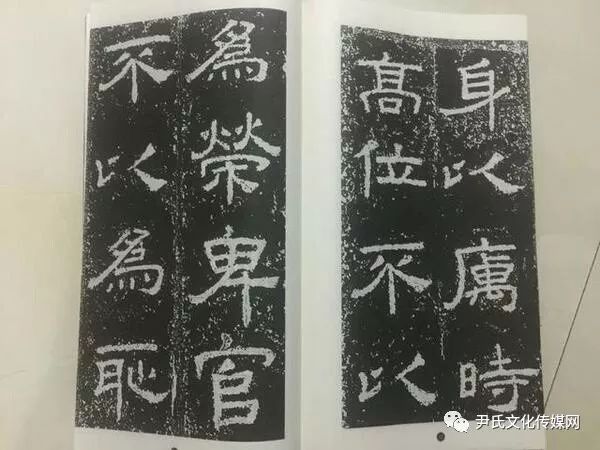 身以厲時
高位不以
為榮卑官
不以為恥
尹氏文化传媒网